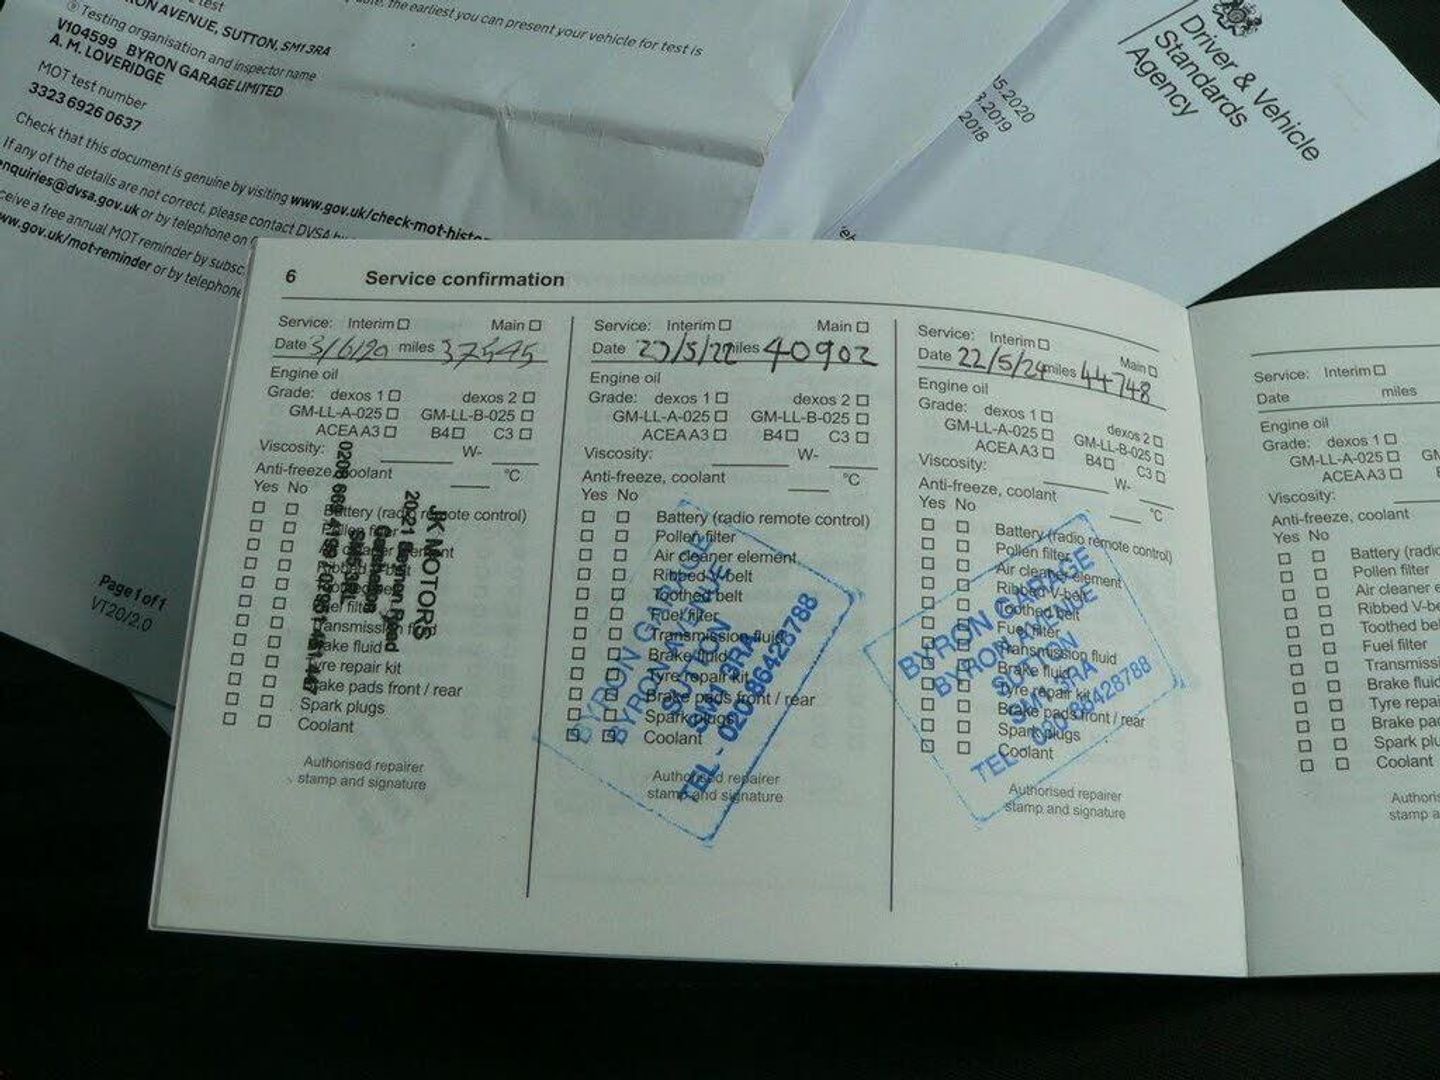 test
the earliest you can present your vehicle for test is
RON AVENUE, SUTTON, SM1 3RA
Testing organisation and inspector name
V104599 BYRON GARAGE LIMITED
A. M. LOVERIDGE
MOT test number
3323 6926 0637
Check that this document is genuine by visiting www.gov.uk/check-mot-histo
If any of the details are not correct, please contact DVSA by
enquiries@dvsa.gov.uk or by telephone on
ceive a free annual MOT reminder by subsc
ww.gov.uk/mot-reminder or by telephone
Page 1 of 1
VT20/2.0
5.2020
.2019
2018
Driver & Vehicle
Standards
Agency
6 Service confirmation
Service: Interim Main
Date 3/6/20 miles 37545
Engine oil
Grade: dexos 1 dexos 2
GM-LL-A-025 GM-LL-B-025
ACEA A3 B4 C3
Viscosity: W-
Anti-freeze, coolant °C
Yes No
Battery (radio remote control)
Pollen filter
Air cleaner element
Fuel filter
Transmission fluid
Brake fluid
Tyre repair kit
Brake pads front / rear
Spark plugs
Coolant
JK MOTORS
Authorised repairer
stamp and signature
Service: Interim Main
Date 20/5/22 miles 40902
Engine oil
Grade: dexos 1 dexos 2
GM-LL-A-025 GM-LL-B-025
ACEA A3 B4 C3
Viscosity: W-
Anti-freeze, coolant °C
Yes No
Battery (radio remote control)
Pollen filter
Air cleaner element
Ribbed V-belt
Toothed belt
Fuel filter
Transmission fluid
Brake fluid
Tyre repair kit
Brake pads front / rear
Spark plugs
Coolant
BYRON GARAGE
BYRON AVENUE
SUTTON
SM1 3RA
TEL - 020 86428788
Authorised repairer
stamp and signature
Service: Interim Main
Date 22/5/24 miles 44748
Engine oil
Grade: dexos 1 dexos 2
GM-LL-A-025 GM-LL-B-025
ACEA A3 B4 C3
Viscosity: W-
Anti-freeze, coolant °C
Yes No
Battery (radio remote control)
Pollen filter
Air cleaner element
Ribbed V-belt
Toothed belt
Fuel filter
Transmission fluid
Brake fluid
Tyre repair kit
Brake pads front / rear
Spark plugs
Coolant
BYRON GARAGE
BYRON AVENUE
SUTTON
SM1 3RA
TEL - 020 86428788
Authorised repairer
stamp and signature
Service: Interim
Date miles
Engine oil
Grade: dexos 1
GM-LL-A-025 GM
ACEA A3
Viscosity:
Anti-freeze, coolant
Yes No
Battery (radio
Pollen filter
Air cleaner e
Ribbed V-be
Toothed bel
Fuel filter
Transmissi
Brake fluid
Tyre repai
Brake pa
Spark plu
Coolant
Authoris
stamp a